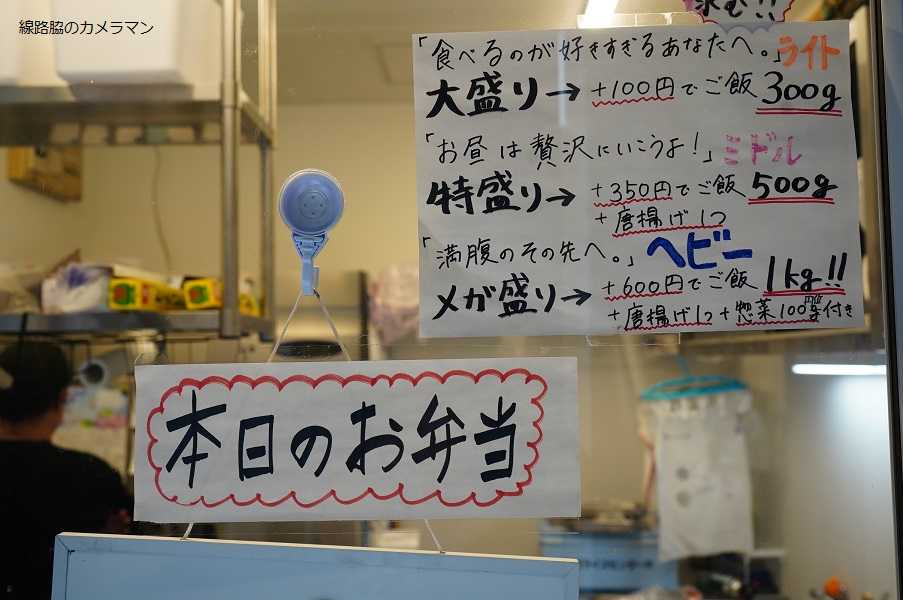 線路脇のカメラマン
求む!!
「食べるのが好きすぎるあなたへ。」ライト
大盛り→ +100円でご飯 300g
「お昼は贅沢にいこうよ!」ミドル
特盛り→ +350円でご飯 500g
+唐揚げ1つ
「満腹のその先へ。」ヘビー
メガ盛り→ +600円でご飯 1kg!!
+唐揚げ1つ+惣菜100円位付き
本日のお弁当